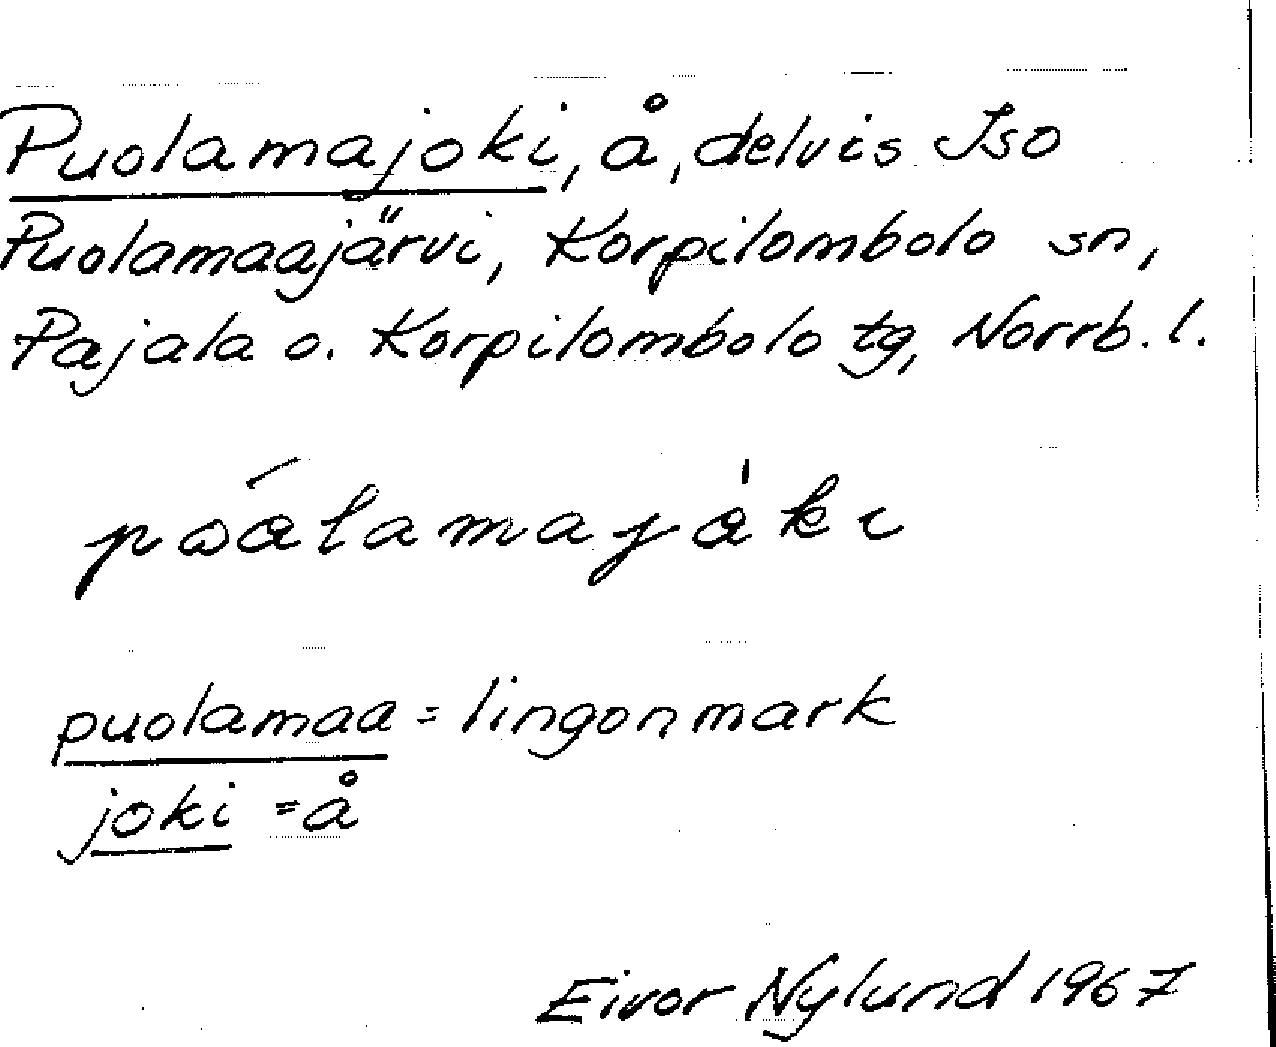 Puolamajoki, å, delvis Iso
Puolamaajärvi, Korpilombolo sn,
Pajala o. Korpilombolo tg, Norrb. l.
puolamaa = lingonmark
joki = å
Eivor Nylund 1967